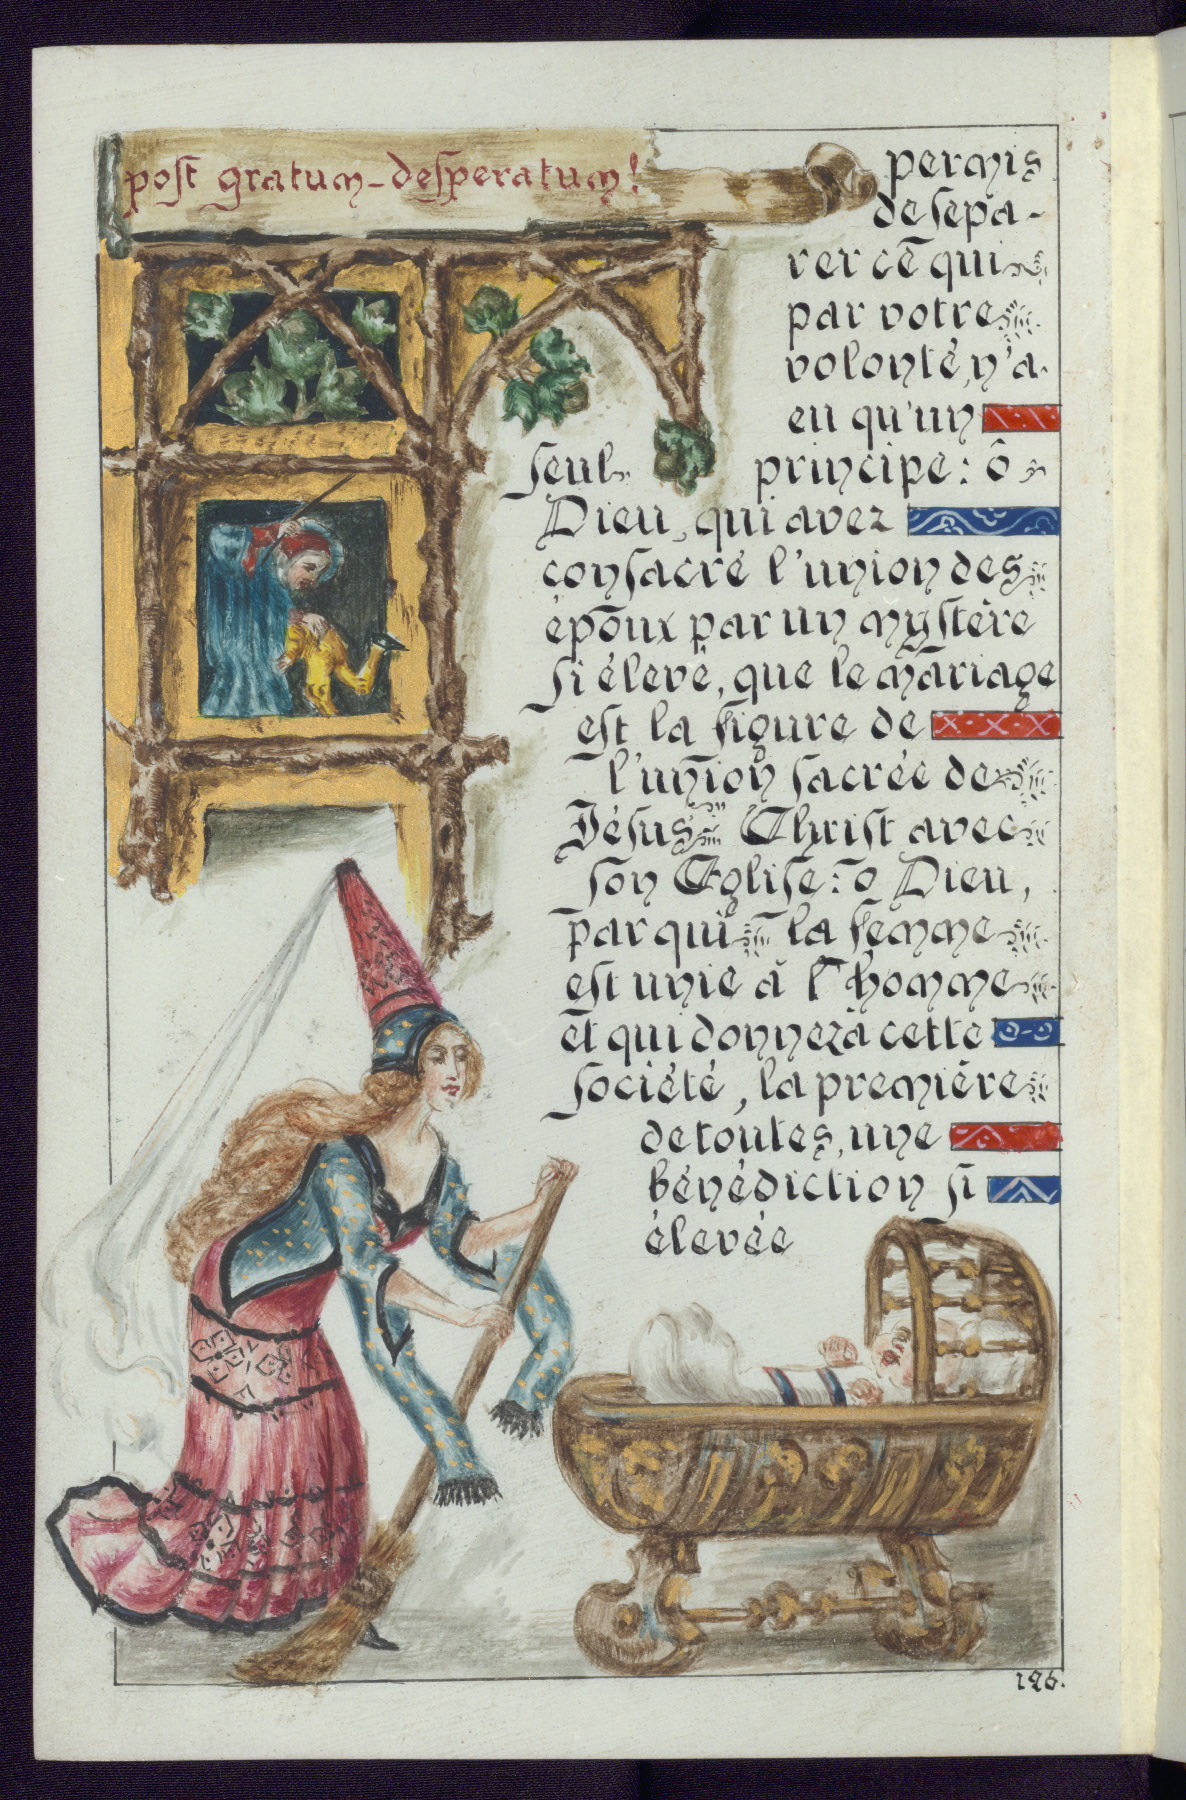 post gratum-desperatum!
permis
de sepa-
rer ce qui
par votre
volonté, n'a
eu qu'un
seul principe: ô
Dieu, qui avez
consacré l'union des
époux par un mystère
si élevé, que le mariage
est la figure de
l'union sacrée de
Jésus Christ avec
son Eglise: ô Dieu,
par qui la femme
est unie à l'homme
et qui donnez à cette
société, la première
de toutes, une
bénédiction si
élevée
126.